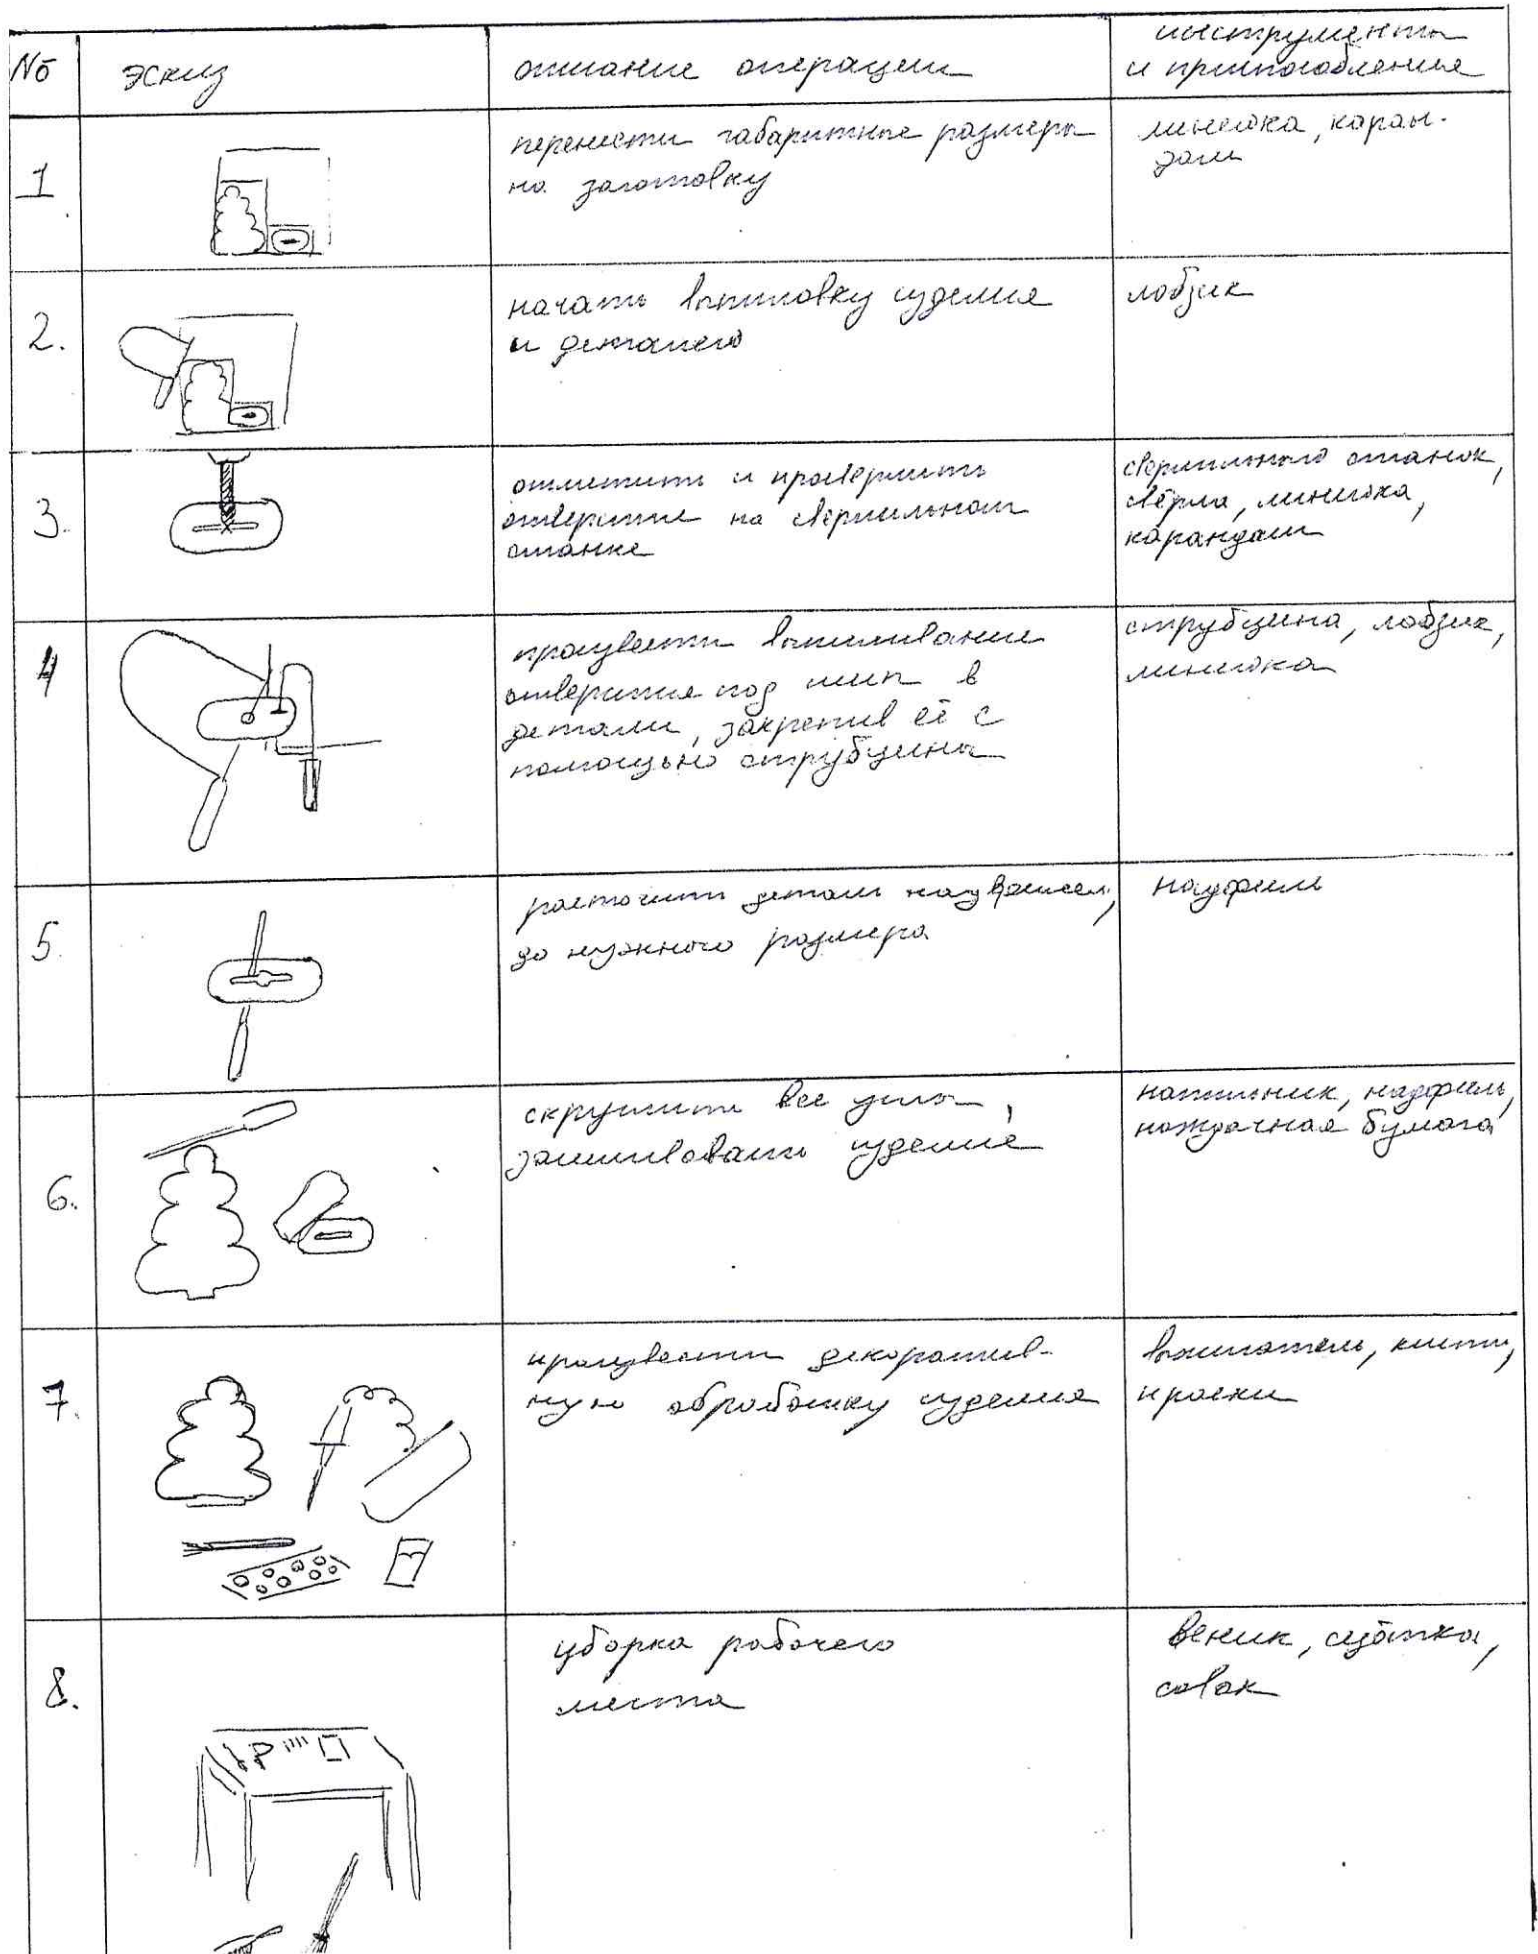 № эскиз описание операции инструменты
и приспособления
1. перенести габаритные размеры
на заготовку
линейка, каран-
даш
2. начать выпиловку изделия
и деталей
лобзик
3. отметить и просверлить
отверстие на сверлильном
станке
сверлильный станок,
свёрла, линейка,
карандаш
4 произвести выпиливание
отверстия под шип в
детали, закрепив её с
помощью струбцины
струбцина, лобзик,
линейка
5. расточить детали надфилем,
до нужного размера
надфиль
6. скруглить все углы,
зашлифовать изделие
напильник, надфиль,
наждачная бумага
7. произвести декоратив-
ную обработку изделия
выжигатель, кисти,
краски
8. уборка рабочего
места
веник, щётка,
совок